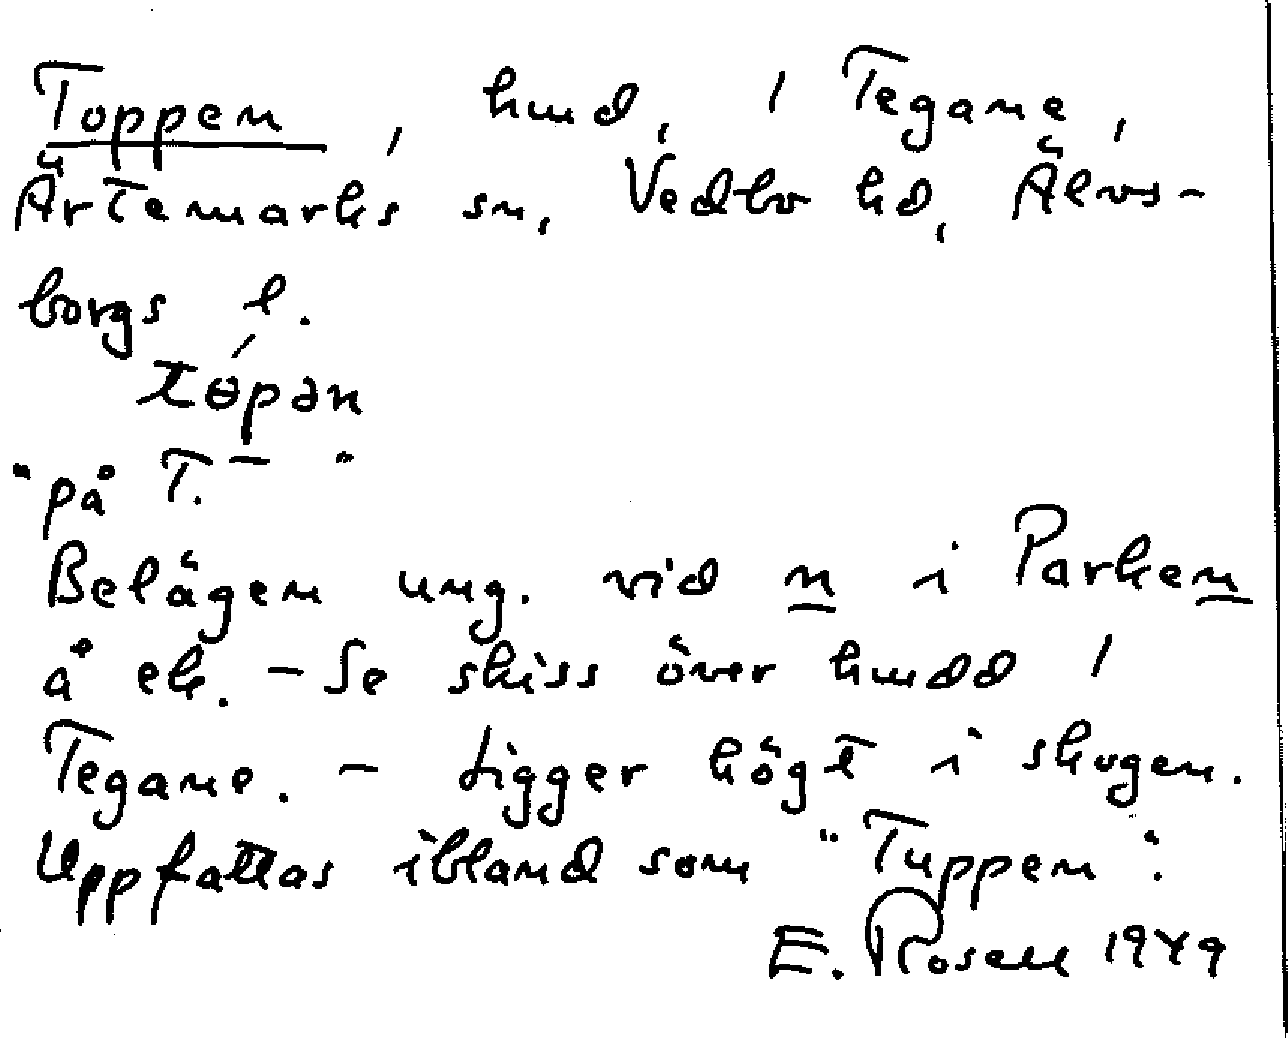 Toppen, hmd, / Tegane,
Ärtemarks sn, Vedbo hd, Älvs-
borgs l.
tɵ́pən
"på T. — "
Belägen ung. vid n i Parken
å ek. – Se skiss över hmdd /
Tegane. – Ligger högt i skogen.
Uppfattas ibland som "Tuppen".
E. Rosell 1949